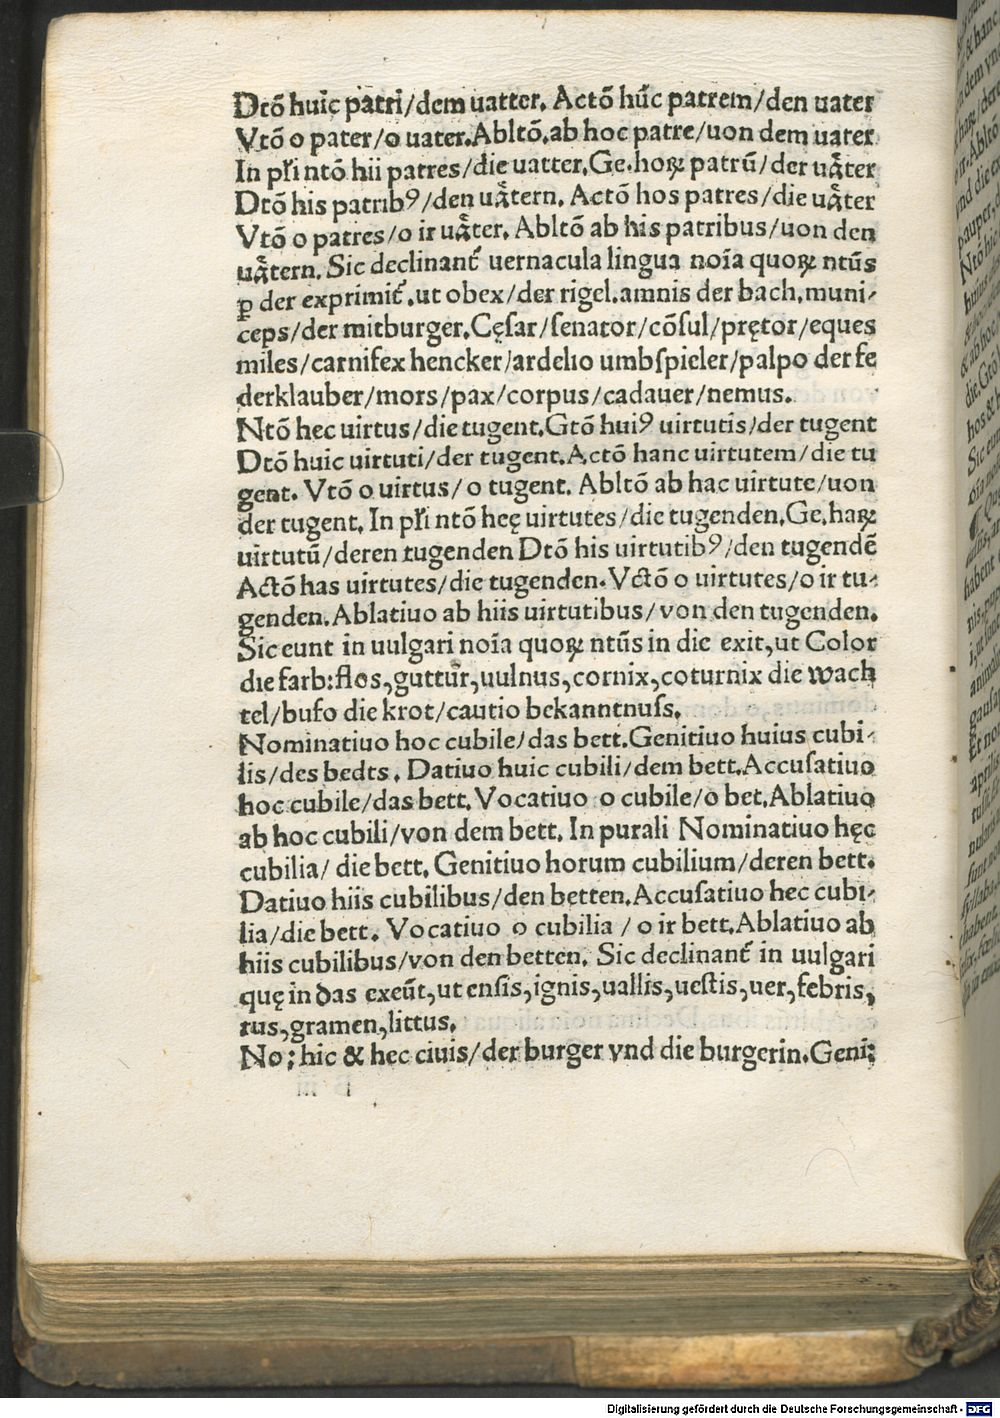 Dtō huic patri/dem uatter. Actō hūc patrem/den uater
Vtō o pater/o uater.Abltō.ab hoc patre/uon dem uater
In pl̃i ntō hii patres/die uatter.Ge.hoꝝ patrū/der uåter
Dtō his patribꝰ/den uåtern. Actō hos patres/die uåter
Vtō o patres/o ir uåter. Abltō ab his patribus/uon den
uåtern. Sic declinant᷑ uernacula lingua noīa quoꝝ ntūs
ꝑ der exprimit᷑.ut obex/der rigel.amnis der bach.muni-
ceps/der mitburger.Cęsar/senator/cōsul/prętor/eques
miles/carnifex hencker/ardelio umbſpieler/palpo der fe
derklauber/mors/pax/corpus/cadauer/nemus.
Ntō hec uirtus/die tugent.Gtō huiꝰ uirtutis/der tugent
Dtō huic uirtuti/der tugent.Actō hanc uirtutem/die tu
gent. Vtō o uirtus/o tugent. Abltō ab hac uirtute/uon
der tugent. In pl̃i ntō heę uirtutes/die tugenden.Ge.haꝝ
uirtutū/deren tugenden Dtō his uirtutibꝰ/den tugendē
Actō has uirtutes/die tugenden.Vctō o uirtutes/o ir tu-
genden.Ablatiuo ab hiis uirtutibus/von den tugenden.
Sic eunt in uulgari noīa quoꝝ ntūs in die exit,ut Color
die farb:flos,guttur,uulnus,cornix,coturnix die wach
tel/bufo die krot/cautio bekanntnuſs.
Nominatiuo hoc cubile/das bett.Genitiuo huius cubi-
lis/des bedts. Datiuo huic cubili/dem bett.Accuſatiuo
hoc cubile/das bett.Vocatiuo o cubile/o bet.Ablatiuo
ab hoc cubili/von dem bett. In purali Nominatiuo hęc
cubilia/ die bett. Genitiuo horum cubilium/deren bett.
Datiuo hiis cubilibus/den betten.Accuſatiuo hec cubi-
lia/die bett. Vocatiuo o cubilia /o ir bett.Ablatiuo ab
hiis cubilibus/von den betten. Sic declinant᷑ in uulgari
quę in das exeūt,ut enſis,ignis,uallis,ueſtis,uer,febris,
rus,gramen,littus.
No: hic & hec ciuis/der burger vnd die burgerin.Geni:
Digitalisierung gefördert durch die Deutsche Forschungsgemeinschaft - DFG